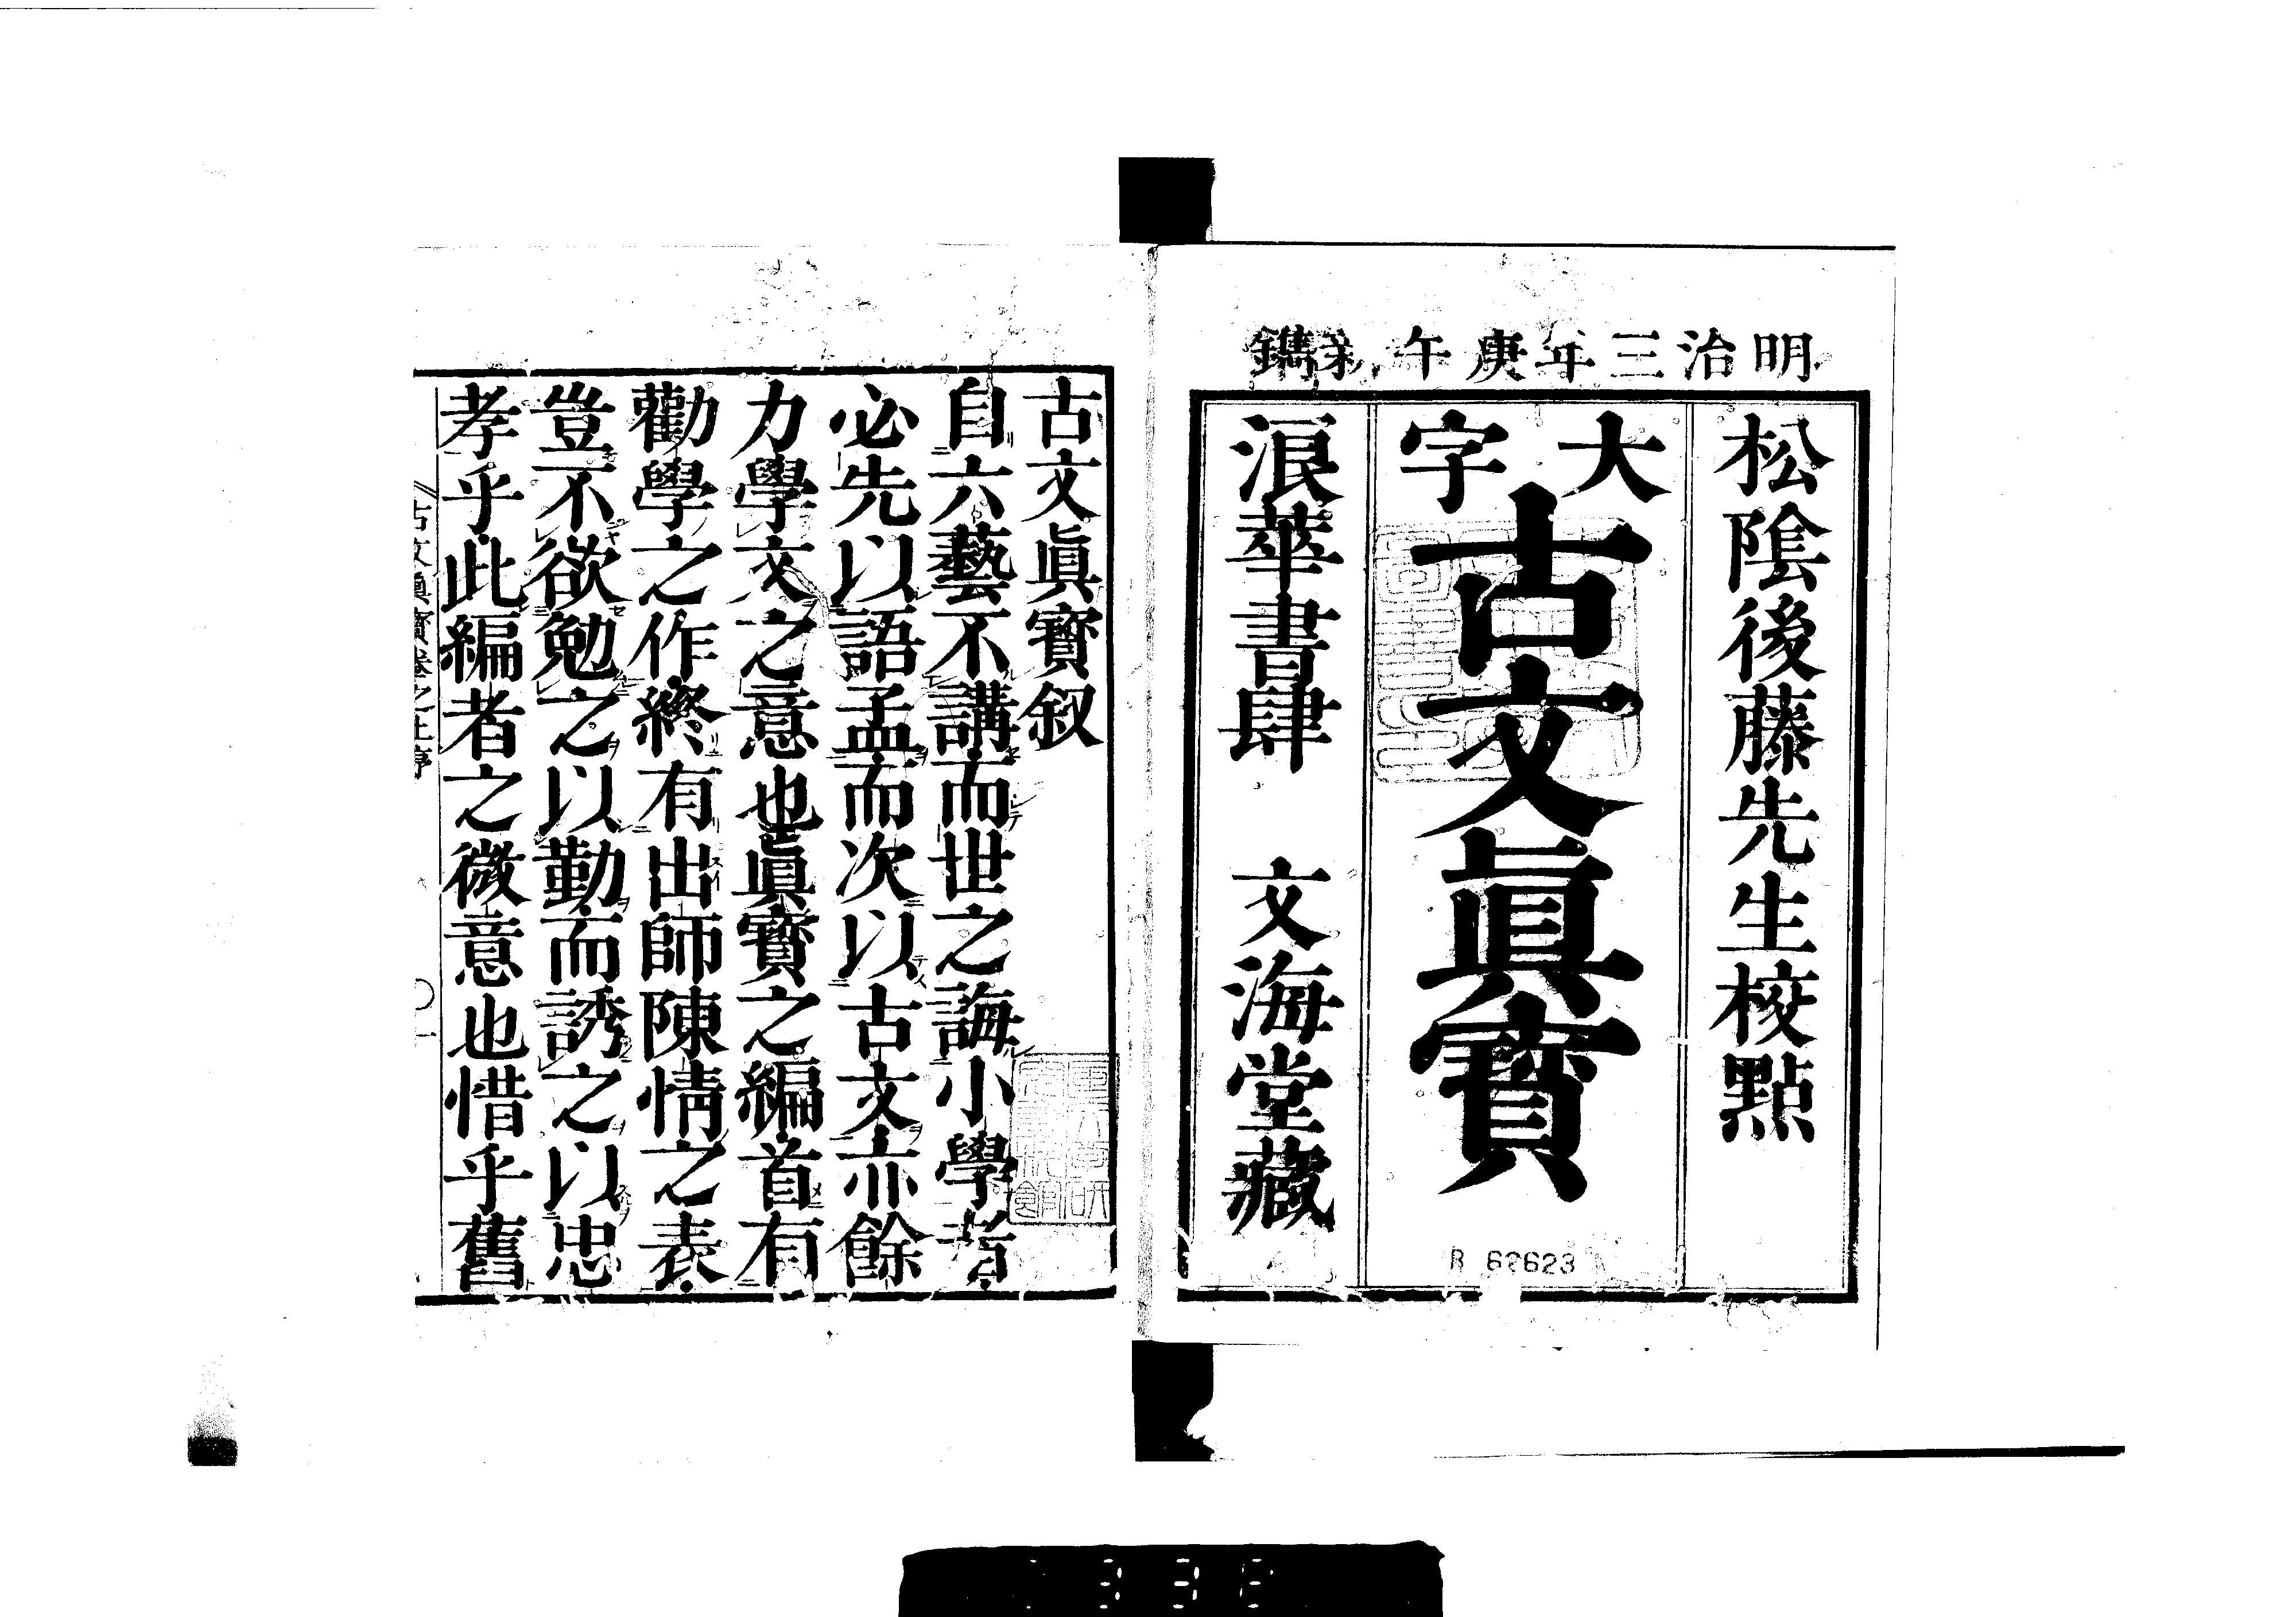 明治三年庚午新鐫
松陰後藤先生校點
大字
古文眞寳
浪華書肆 文海堂藏
B 62623
古文眞寳叙
自六藝不講而世之誨小學者
必先以語孟而次以古文亦餘
力學文之意也眞寳之編首有
勸學之作終有出師陳情之表
豈不欲勉之以勤而誘之以忠
孝乎此編者之微意也惜乎舊
古文眞寳卷之上序